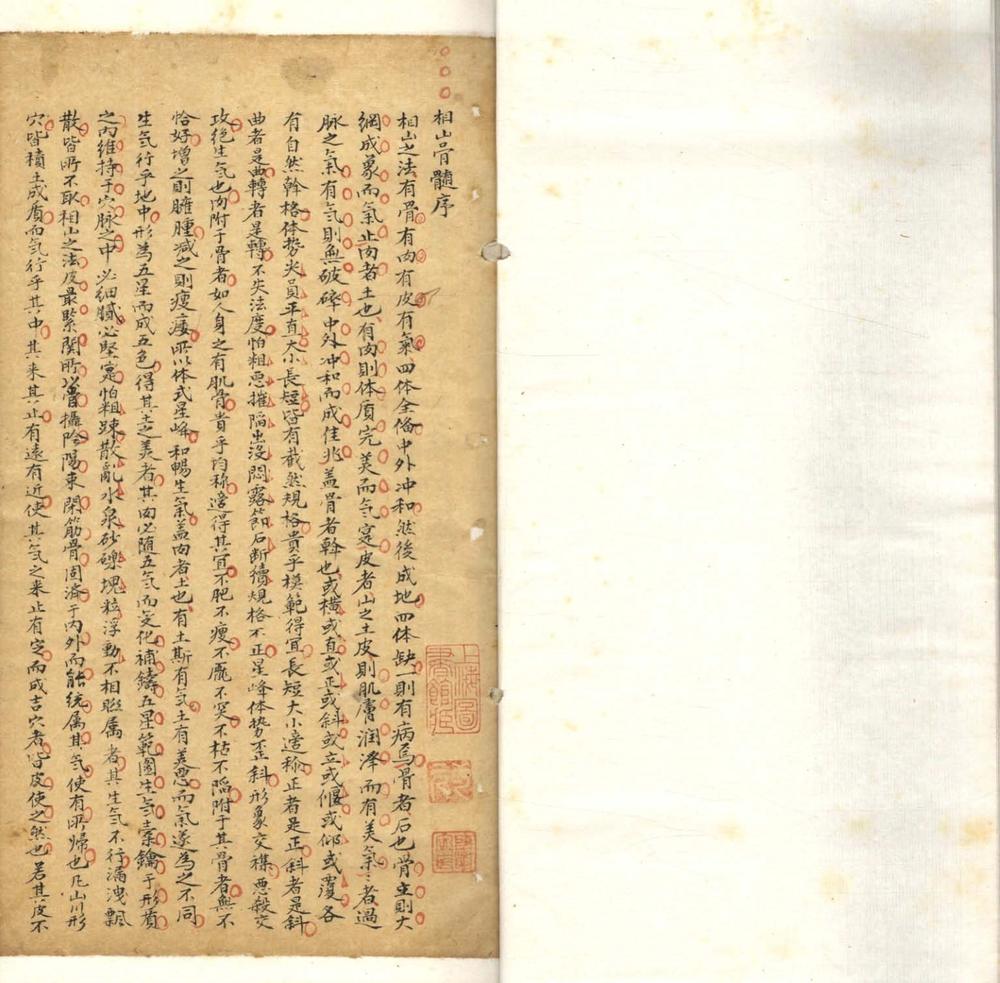 相山骨髓序
相山之法有骨有肉有皮有氣四体全俻中外冲和然後成地四体缺一則有病焉骨者石也骨立則大
綱成象而氣止肉者土也有肉則体质完美而气寔皮者山之土皮則肌膚润泽而有美氣〻者過
脉之氣有气則無破碎中外冲和而成佳兆盖骨者幹也或横或直或正或斜或立或偃或仰或覆各
有自然幹格体势尖員平直大小長短皆有截然規格貴乎模範得宜長短大小適称正者是正斜者是斜
曲者是曲轉者是轉不失法度怕粗恶摧陷虫没悶露節石断續規格不正星峰体势歪斜形象交襍恶殺交
攻绝生气也肉附于骨者如人身之有肌骨貴乎均称適得其宜不肥不瘦不麄不突不枯不陷附于其骨者無不
恰好增之則臃腫减之則瘦瘻所以体式星峰和暢生氣盖肉者土也有土斯有气土有美恶而氣遂為之不同
生气行乎地中形為五星而成五色得其土之美者其肉必随五气而变化補鑄五星範圍生气橐籥于形質
之内維持于穴脉之中必细膩必堅寔怕粗踈散亂水泉砂礫塊粒浮動不相聮属者其生气不行漏洩飄
散皆所不取相山之法皮最緊関所以管攝陰陽束閑筋骨固濟于内外而能统属其气使有所歸也凡山川形
穴皆積土成质而气行乎其中其来其止有遠有近使其气之来止有定而成吉穴者皆皮使之然也若其皮不
上海圖書館藏